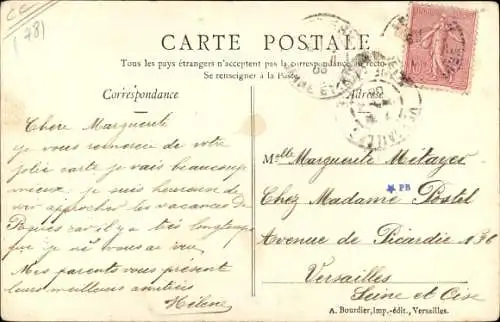 CC
(78)
CARTE POSTALE
Tous les pays étrangers n'acceptent pas la correspondance au recto
Se renseigner à la Poste
Correspondance
Adresse
Chere Marguerite
je vous remercie de votre
jolie carte je vais beaucoup
mieux. je suis heureuse de
voir approcher les vacances de
Pâques car il y a très longtemps
que je ne vous ai vu
Mes parents vous présent
leurs meilleures amitiées
Hélène
Melle Marguerite Métayer
PB
Chez Madame Postel
Avenue de Picardie 136
Versailles
Seine et Oise
A. Bourdier, Imp.-édit., Versailles.